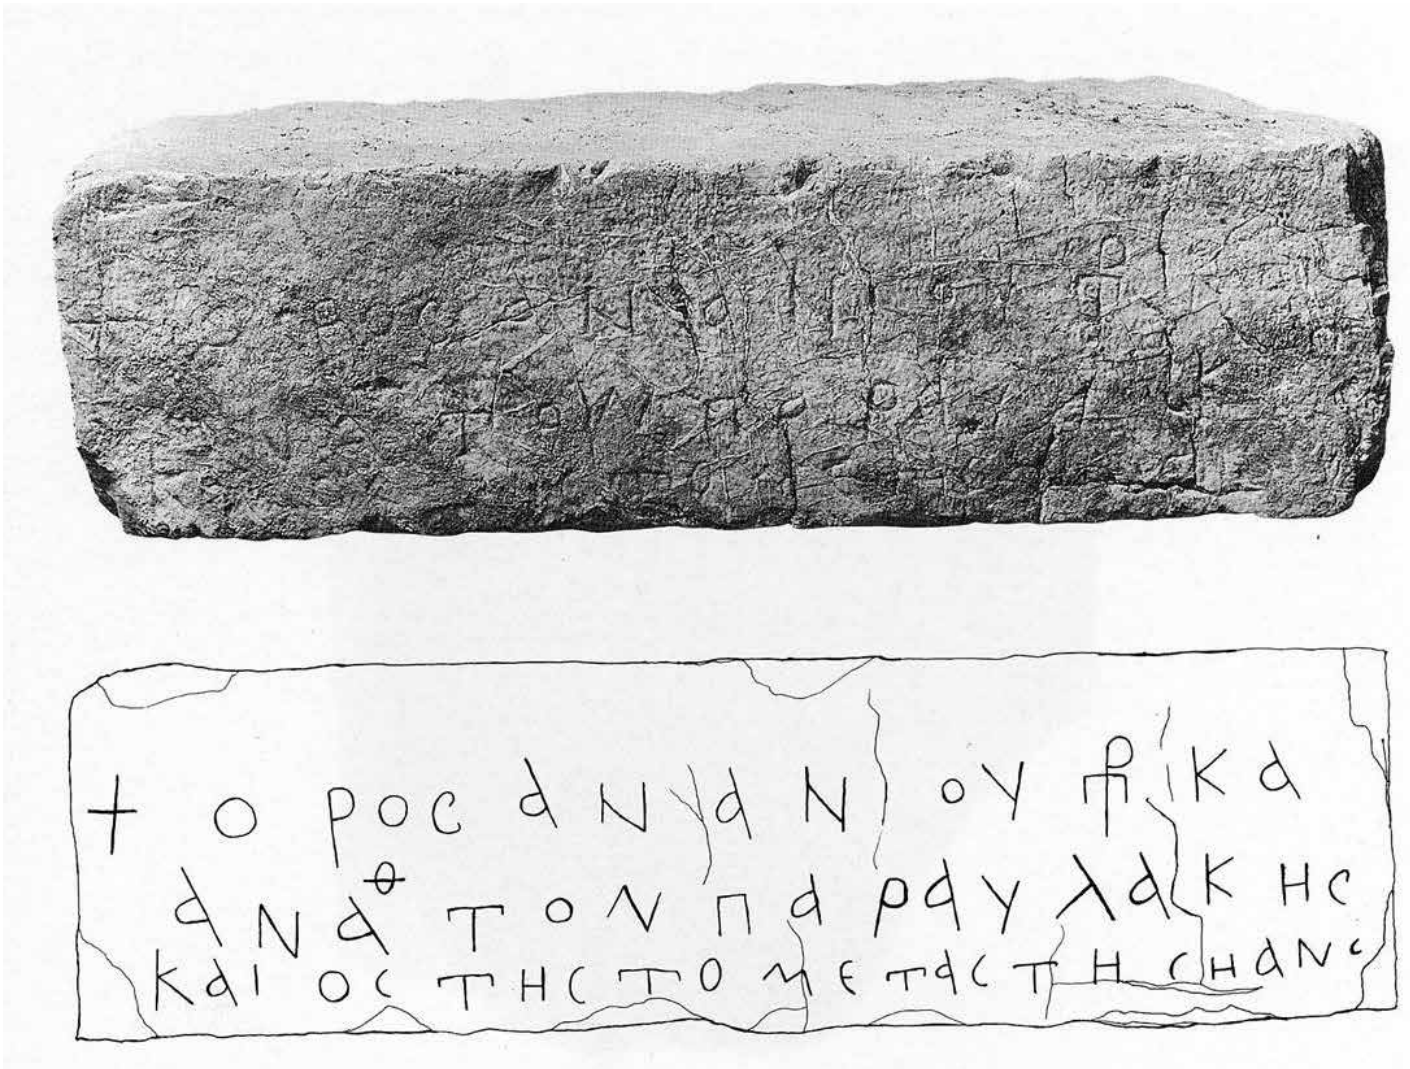 + ΟΡΟC ΑΝΑΝΟΥ ΠΡ ΚΑ
ΑΝΑΘ ΤΟΝ ΠΑΡΑΥΛΑΚΗC
ΚΑΙ ΟC ΤΗC ΤΟ ΜΕΤΑCΤΗCΗ ΑΝC